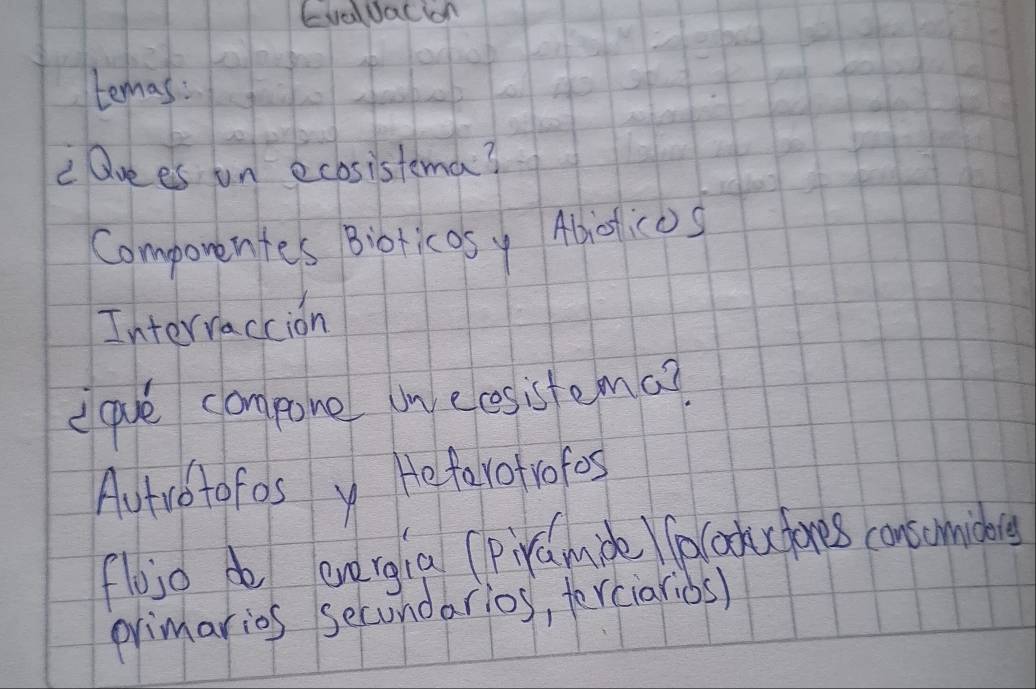 Evaluación
temas:
¿Que es un ecosistema?
Componentes Bioticos y Abioticos
Interracción
¿qué compone un ecosistema?
Autrótofos y Heterotrofos
flujo de energía (Pirámide) (productores consumidores
primarios secundarios, terciarios)